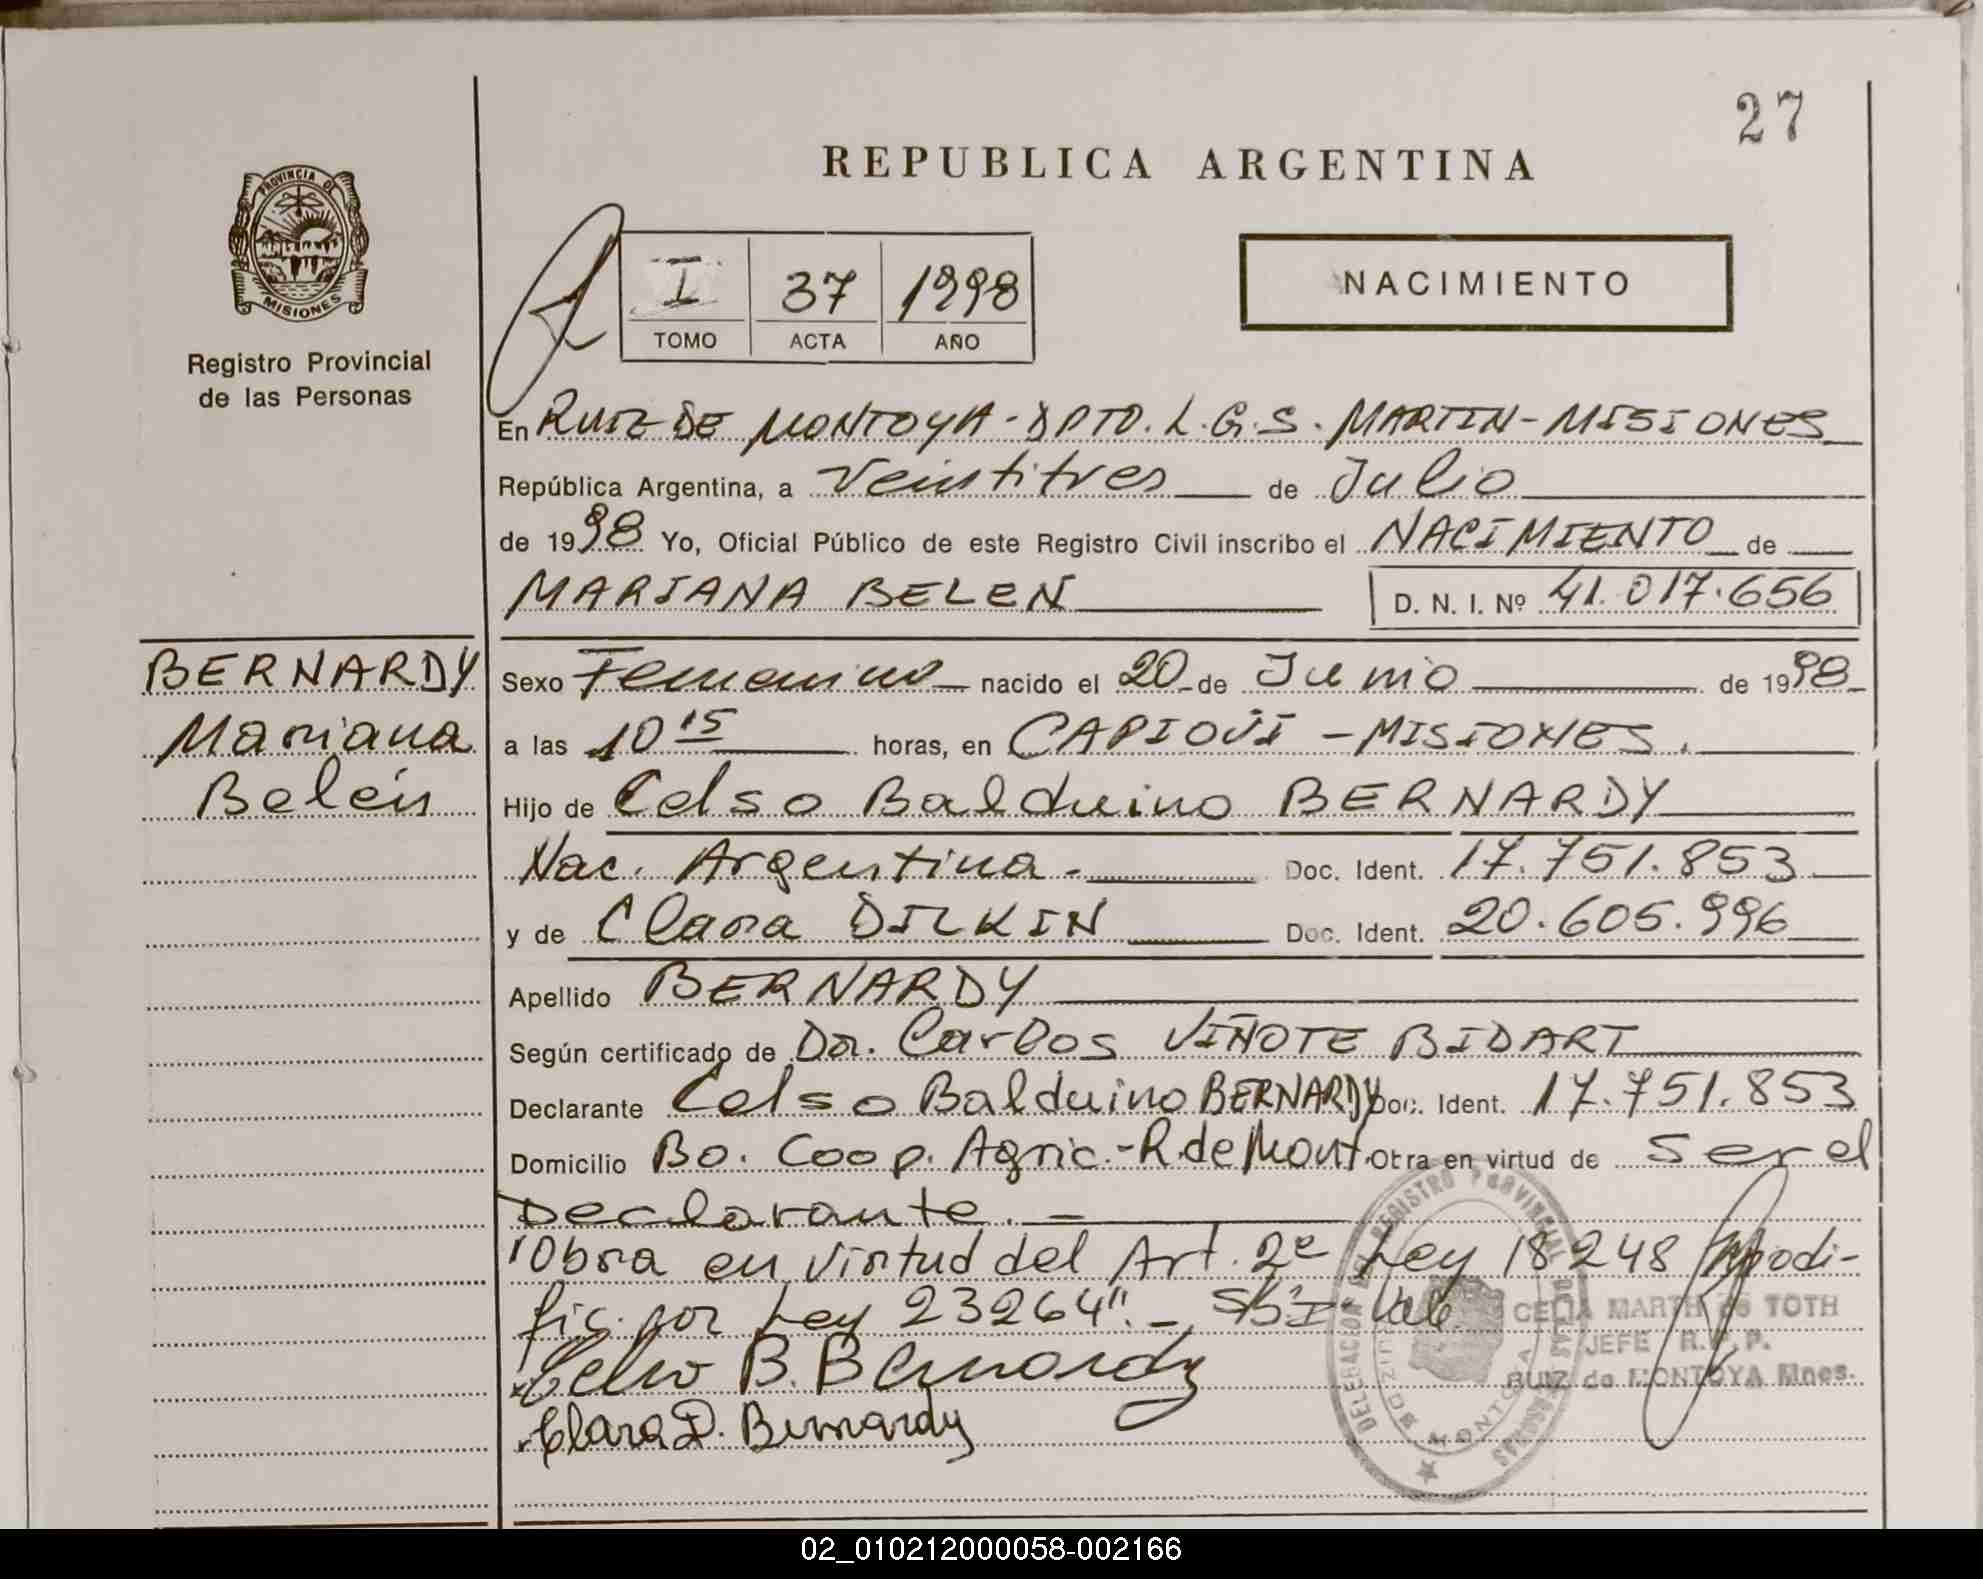 27
REPUBLICA ARGENTINA
PROVINCIA DE
MISIONES
Registro Provincial
de las Personas
I 37 1998
TOMO ACTA AÑO
NACIMIENTO
En RUIZ DE MONTOYA - DPTO. L.G.S. MARTIN - MISIONES
República Argentina, a Veintitres de Julio
de 1998 Yo, Oficial Público de este Registro Civil inscribo el NACIMIENTO de
MARIANA BELEN D. N. I. Nº 41.017.656
BERNARDY
Mariana
Belén
Sexo Femenino nacido el 20 de Junio de 1998
a las 10 15 horas, en CAPIOVI - MISIONES.
Hijo de Celso Balduino BERNARDY
Nac. Argentina. Doc. Ident. 17.751.853
y de Clara DILKIN Doc. Ident. 20.605.996
Apellido BERNARDY
Según certificado de Dr. Carlos VIÑOTE BIDART
Declarante Celso Balduino BERNARDY Doc. Ident. 17.751.853
Domicilio Bo. Coop. Agric. - R. de Mont. Obra en virtud de ser el
Declarante. -
"Obra en virtud del Art. 2º Ley 18248 Modi-
fic. por Ley 23264". - Vale
Celso B. Bernardy
Clara D. Bernardy
DELEGACION DEL REGISTRO PROVINCIAL DE LAS PERSONAS
MONTOYA
CELIA MARTH de TOTH
JEFE R.P.P.
RUIZ de MONTOYA Mnes.
02_010212000058-002166